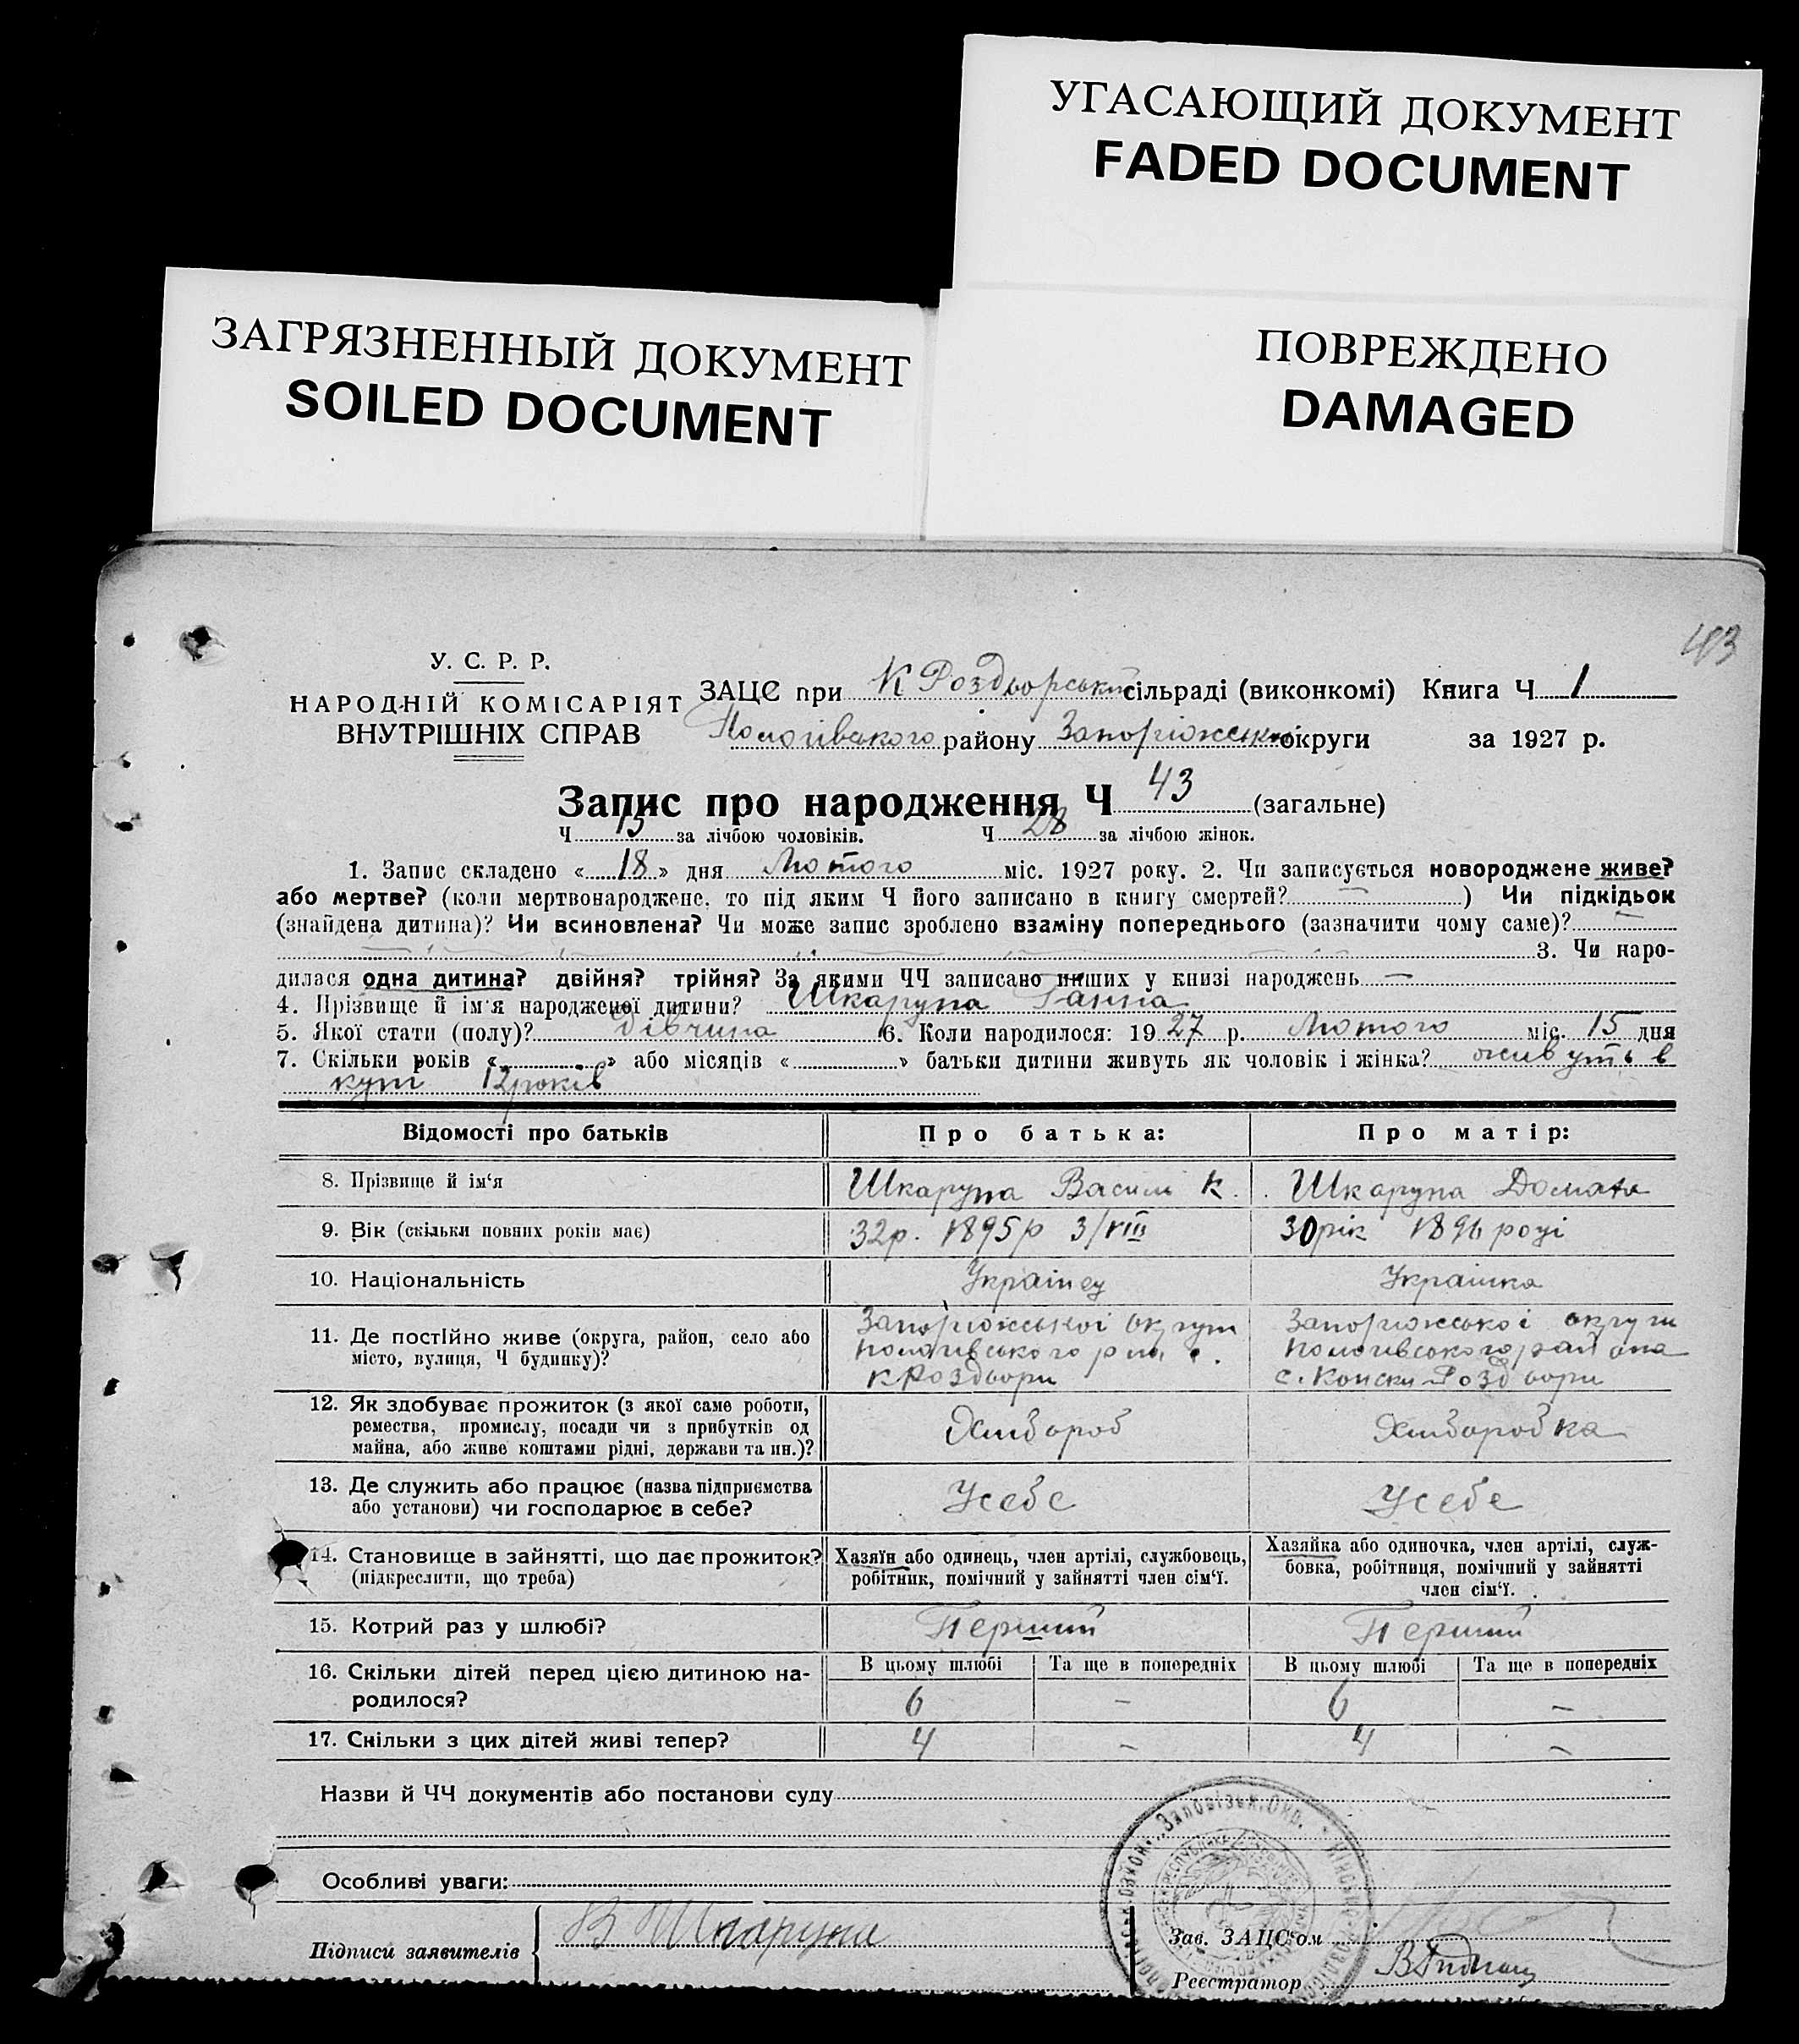 УГАСАЮЩИЙ ДОКУМЕНТ
FADED DOCUMENT
ЗАГРЯЗНЕННЫЙ ДОКУМЕНТ
SOILED DOCUMENT
ПОВРЕЖДЕНО
DAMAGED
У. С. Р. Р.
НАРОДНІЙ КОМІСАРІЯТ
ВНУТРІШНІХ СПРАВ
ЗАЦС при К Роздорській сільраді (виконкомі) Книга Ч 1
Пологівського району Запоріжської округи за 1927 р.
Запис про народження Ч 43 (загальне)
Ч 15 за лічбою чоловіків. Ч 28 за лічбою жінок.
1. Запис складено « 18 » дня Лютого міс. 1927 року. 2. Чи записується новороджене живе?
або мертве? (коли мертвонароджене, то під яким Ч його записано в книгу смертей? — ) Чи підкідьок
(знайдена дитина)? Чи всиновлена? Чи може запис зроблено взаміну попереднього (зазначити чому саме)? —
3. Чи наро-
дилася одна дитина? двійня? трійня? За якими ЧЧ записано инших у книзі народжень —
4. Прізвище й ім'я народженої дитини? Шкарупа Ганна
5. Якої стати (полу)? дівчина 6. Коли народилося: 1927 р. Лютого міс. 15 дня
7. Скільки років « » або місяців « » батьки дитини живуть як чоловік і жінка? живуть в
куп 12 років
Відомості про батьків Про батька: Про матір:
8. Прізвище й ім'я Шкарупа Василь К. Шкарупа Домаха
9. Вік (скільки повних років має) 32р. 1895р 3/VIII 30рік 1896 році
10. Національність Українец Українка
11. Де постійно живе (округа, район, село або
місто, вулиця, Ч будинку)?
Запоріжської округи
Пологівського р-на с.
К Роздори
Запоріжської округи
Пологівського района
с. Конски-Роздори
12. Як здобуває прожиток (з якої саме роботи,
ремества, промислу, посади чи з прибутків од
майна, або живе коштами рідні, держави та ин.)?
Хлібороб Хлібаробка
13. Де служить або працює (назва підприємства
або установи) чи господарює в себе?
Усебе Усебе
14. Становище в зайнятті, що дає прожиток?
(підкреслити, що треба)
Хазяїн або одинець, член артілі, службовець,
робітник, помічний у зайнятті член сім'ї.
Хазяйка або одиночка, член артілі, служ-
бовка, робітниця, помічний у зайнятті
член сім'ї.
15. Котрий раз у шлюбі? Перший Перший
16. Скільки дітей перед цією дитиною на-
родилося?
В цьому шлюбі Та ще в попередніх В цьому шлюбі Та ще в попередніх
6 — 6 —
17. Скільки з цих дітей живі тепер? 4 — 4 —
Назви й ЧЧ документів або постанови суду
Особливі уваги:
Підписи заявителів В Шкарупа
Зав. ЗАЦС'ом
Реєстратор